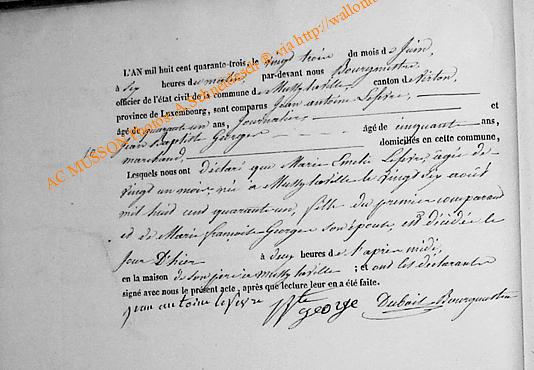 L'AN mil huit cent quarante-trois, le vingt trois du mois de Juin,
à six heures du matin, par-devant nous Bourgmestre
officier de l'état civil de la commune de Mussy la ville canton de Virton,
province de Luxembourg, sont comparus Jean antoine Lefevre,
âgé de quarante un ans, Journalier, et
Jean Baptiste Georges âgé de cinquante ans,
marchand, domiciliés en cette commune,
Lesquels nous ont déclaré que Marie Lefevre, agée de
vingt un mois, née à Mussy la ville le vingt six août
mil huit cent quarante un, fille du premier comparant
et de Marie françoise Georges son épouse, est décédée le
jour D'hier à deux heures de l'après midi,
en la maison de son père à Mussy la ville ; et ont les déclarants
signé avec nous le présent acte, après que lecture leur en a été faite.
jean antoine lefevre george Dubois Bourgmestre
AC MUSSON Photos: A. Schneidesch ® via http://wallonia